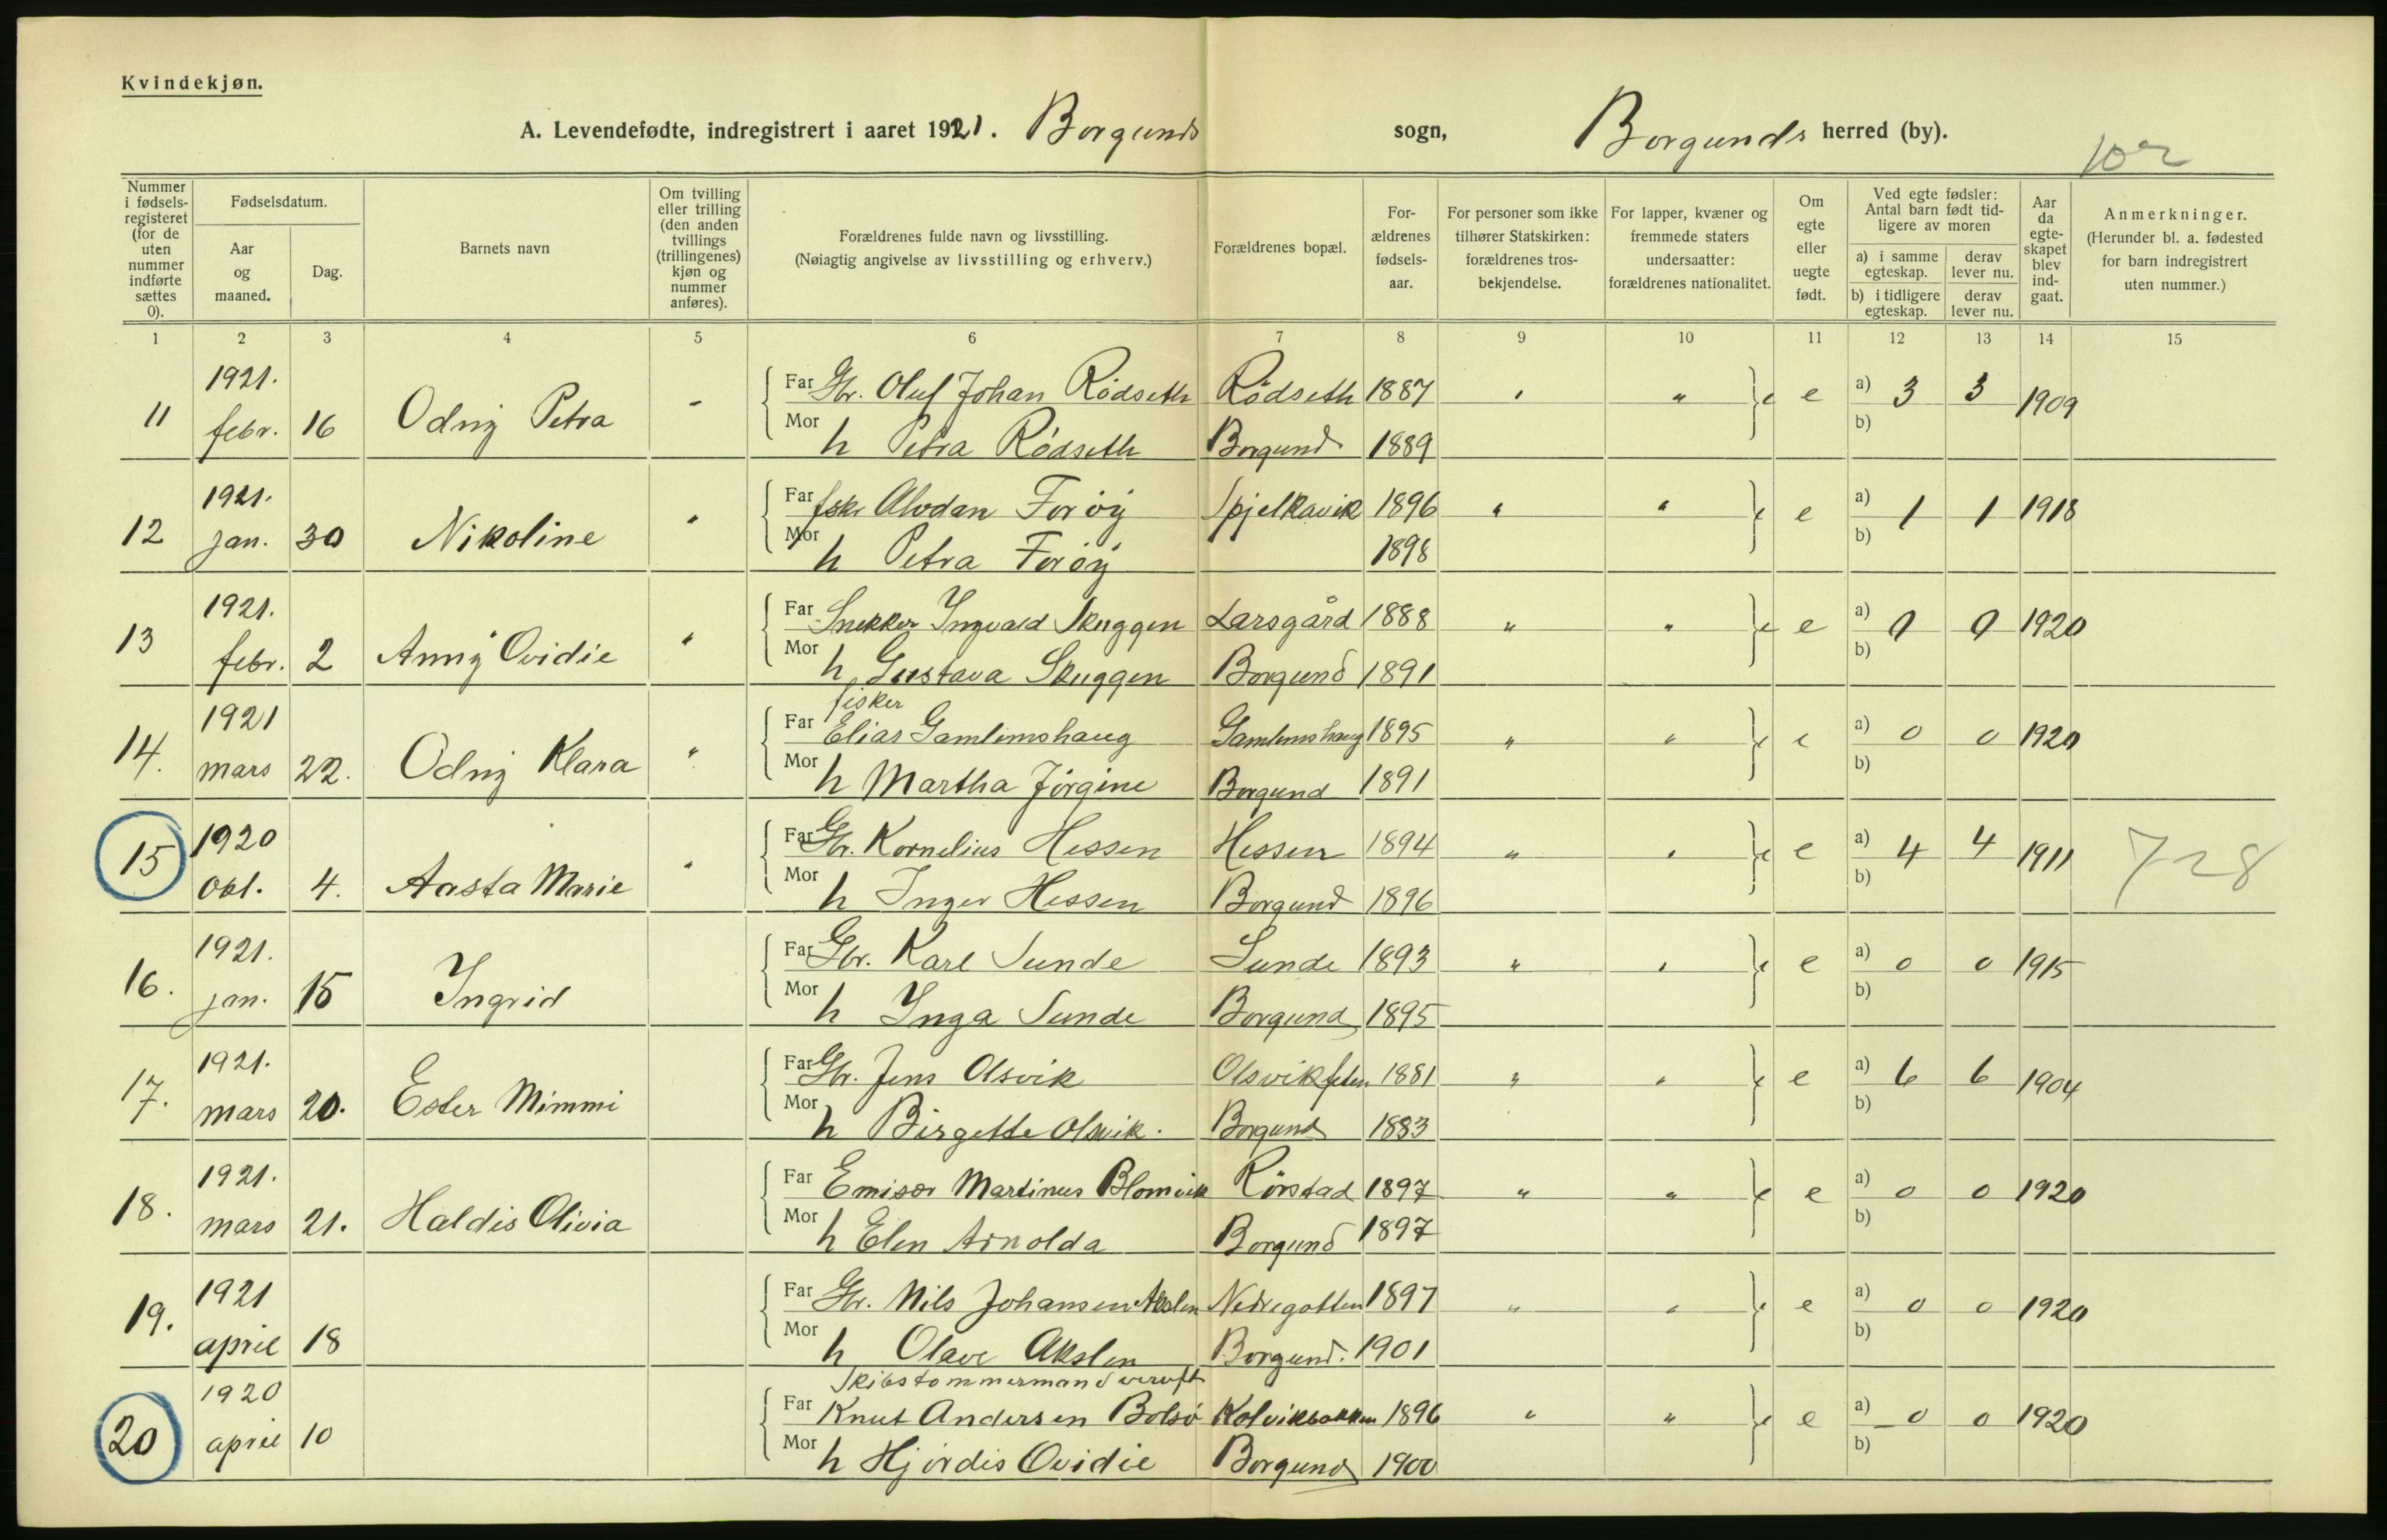 Kvindekjøn.
A. Levendefødte, indregistrert i aaret 1921. Borgunds sogn, Borgunds herred (by).
102
Nummer i fødselsregisteret (for de uten nummer indførte sættes 0).
Fødselsdatum.
Aar og maaned.
Dag.
Barnets navn
Om tvilling eller trilling (den anden tvillings (trillingenes) kjøn og nummer anføres).
Forældrenes fulde navn og livsstilling.
(Nøiagtig angivelse av livsstilling og erhverv.)
Forældrenes bopæl.
Forældrenes fødselsaar.
For personer som ikke tilhører Statskirken: forældrenes trosbekjendelse.
For lapper, kvæner og fremmede staters undersaatter: forældrenes nationalitet.
Om egte eller uegte født.
Ved egte fødsler: Antal barn født tidligere av moren
a) i samme egteskap. derav lever nu.
b) i tidligere egteskap. derav lever nu.
Aar da egteskapet blev indgaat.
Anmerkninger.
(Herunder bl. a. fødested for barn indregistrert uten nummer.)
1 2 3 4 5 6 7 8 9 10 11 12 13 14 15
1921. Far Gbr. Oluf Johan Rødseth Rødseth 1887 " " e e a) 3 3 1909
11 febr. 16 Odny Petra - Mor h Petra Rødseth Borgund 1889 b)
1921. Far fisk. Alvdan Forøy Spjelkavik 1896 " " e e a) 1 1 1918
12 jan. 30 Nikoline " Mor h Petra Forøy 1898 b)
1921. Far Snekker Ingvald Skuggen Larsgård 1888 " " e e a) 0 0 1920
13 febr. 2 Anny Ovidie " Mor h Gustava Skuggen Borgund 1891 b)
fisker
1921 Far Elias Gamlemshaug Gamlemshaug 1895 " " e e a) 0 0 1920
14. mars 22. Odny Klara " Mor h Martha Jørgine Borgund 1891 b)
1920 Far Gbr. Kornelius Hessen Hessen 1894 " " e e a) 4 4 1911 728
15 Okt. 4. Aasta Marie " Mor h Inger Hessen Borgund 1896 b)
1921. Far Gbr. Karl Sunde Sunde 1893 " " e e a) 0 0 1915
16. jan. 15 Ingrid Mor h Inga Sunde Borgund 1895 b)
1921. Far Gbr. Jens Olsvik Olsvikfeten 1881 " " e e a) 6 6 1904
17. mars 20. Ester Mimmi Mor h Birgette Olsvik. Borgund 1883 b)
1921. Far Emisær Martinus Blomvik Rørstad 1897 " " e e a) 0 0 1920
18. mars 21. Haldis Olivia Mor h Elen Arnolda Borgund 1897 b)
1921 Far Gbr. Nils Johansen Akslen Nedregotten 1897 " " e e a) 0 0 1920
19. april 18 Mor h Olave Akslen Borgund. 1901 b)
Skibstømmermand
1920 Far Knut Andersen Bolsø Kolvikbakken 1896 " " e e a) 0 0 1920
20 april 10 Mor h Hjørdis Ovidie Borgund 1900 b)